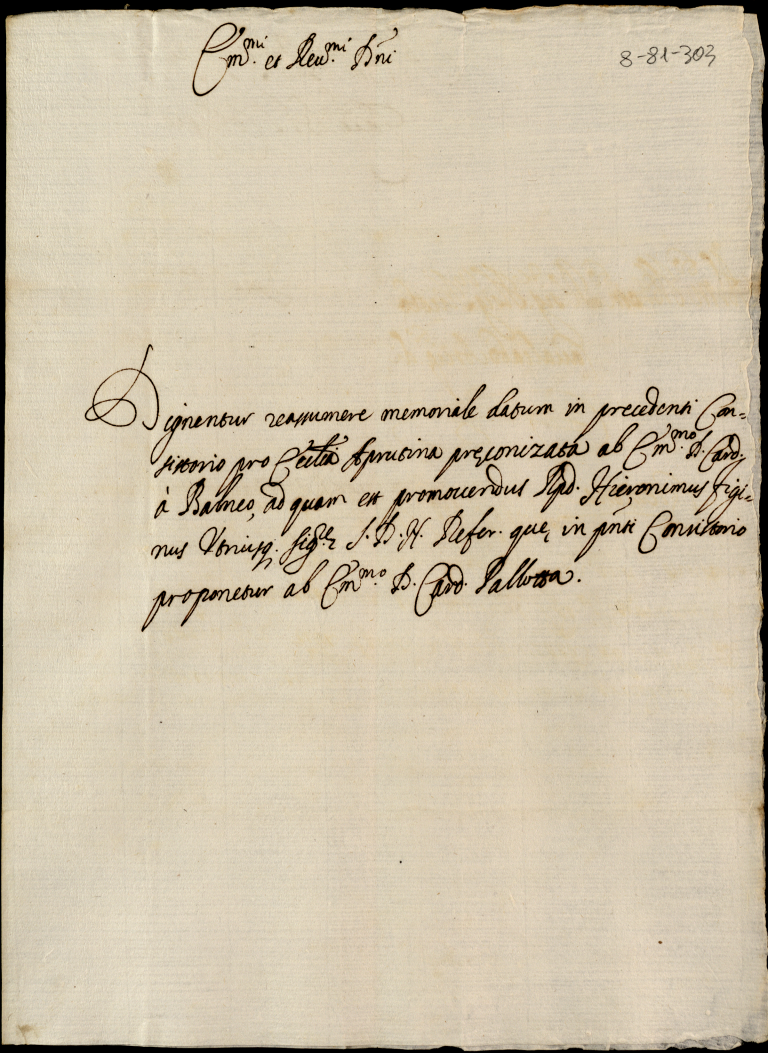 Em.mi et Reu.mi Dni
8-81-303
Dignentur reassumere memoriale datum in precedenti Con=
sistorio pro Ecclia Aprutina pręconizata ab Em.mo D. Card.
à Balneo, ad quam est promouendus Rpd. Hieronimus figi=
nus Vtriusq. sigre S. D. N. Refer. quę in pnti Consistorio
proponetur ab Em.mo D. Card. Pallotta.